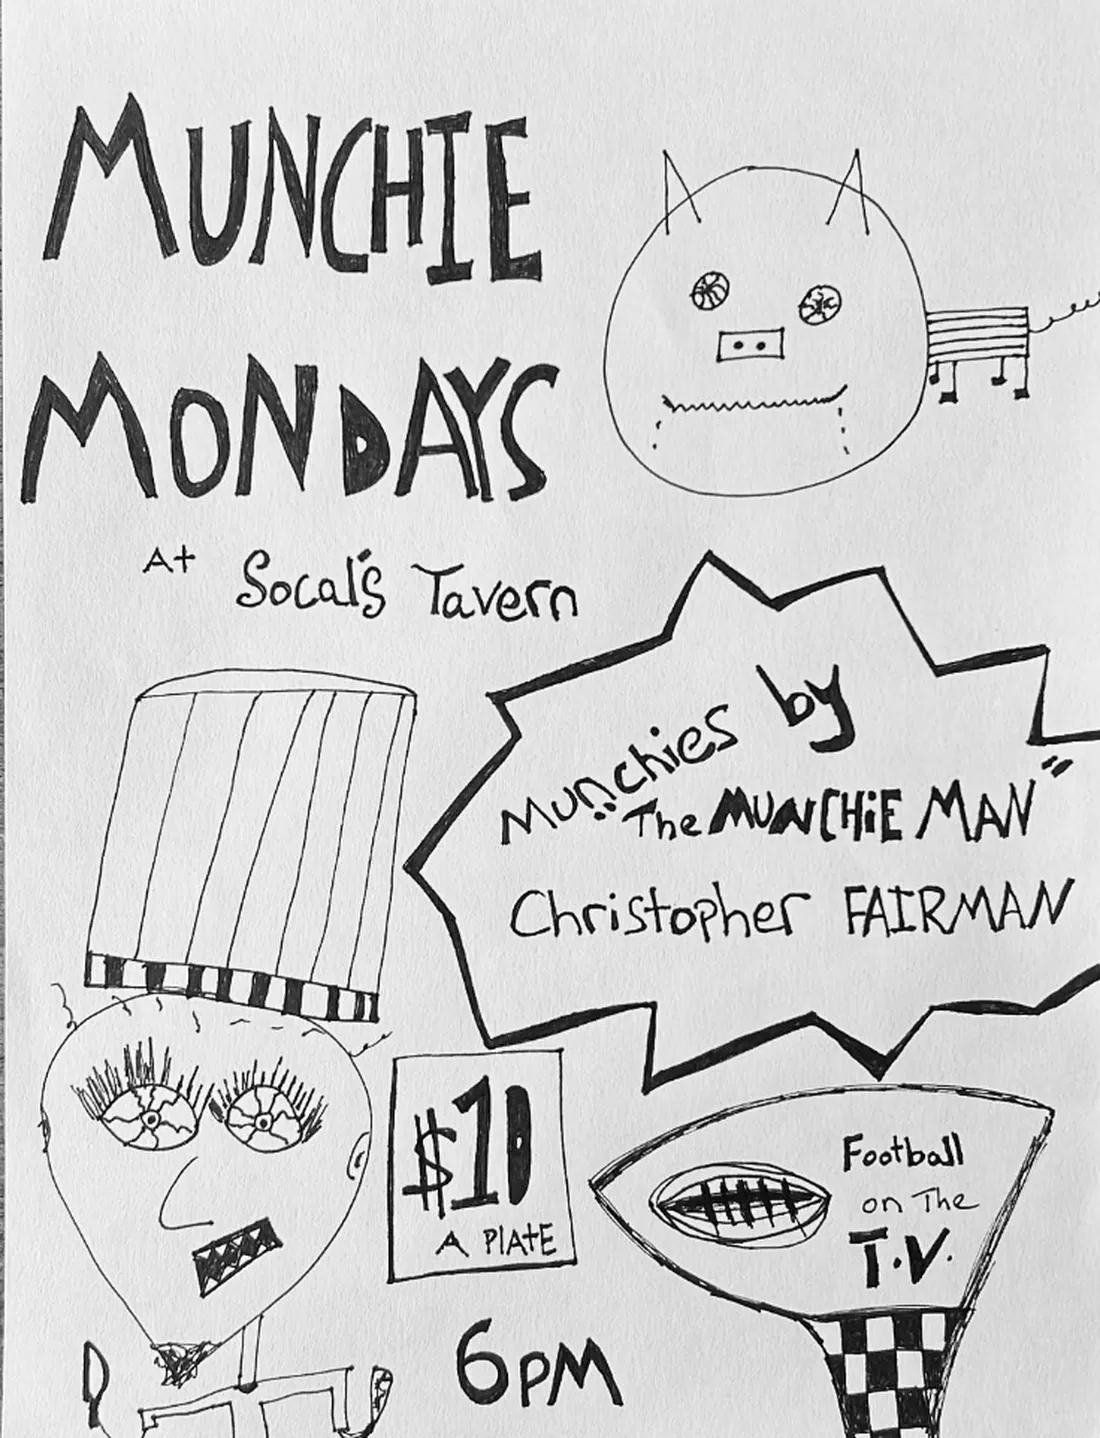 MUNCHIE
MONDAYS
At Socal's Tavern
Munchies by
"The MUNCHiE MAN"
Christopher FAIRMAN
$10
A PLATE
Football
on The
T.V.
6PM